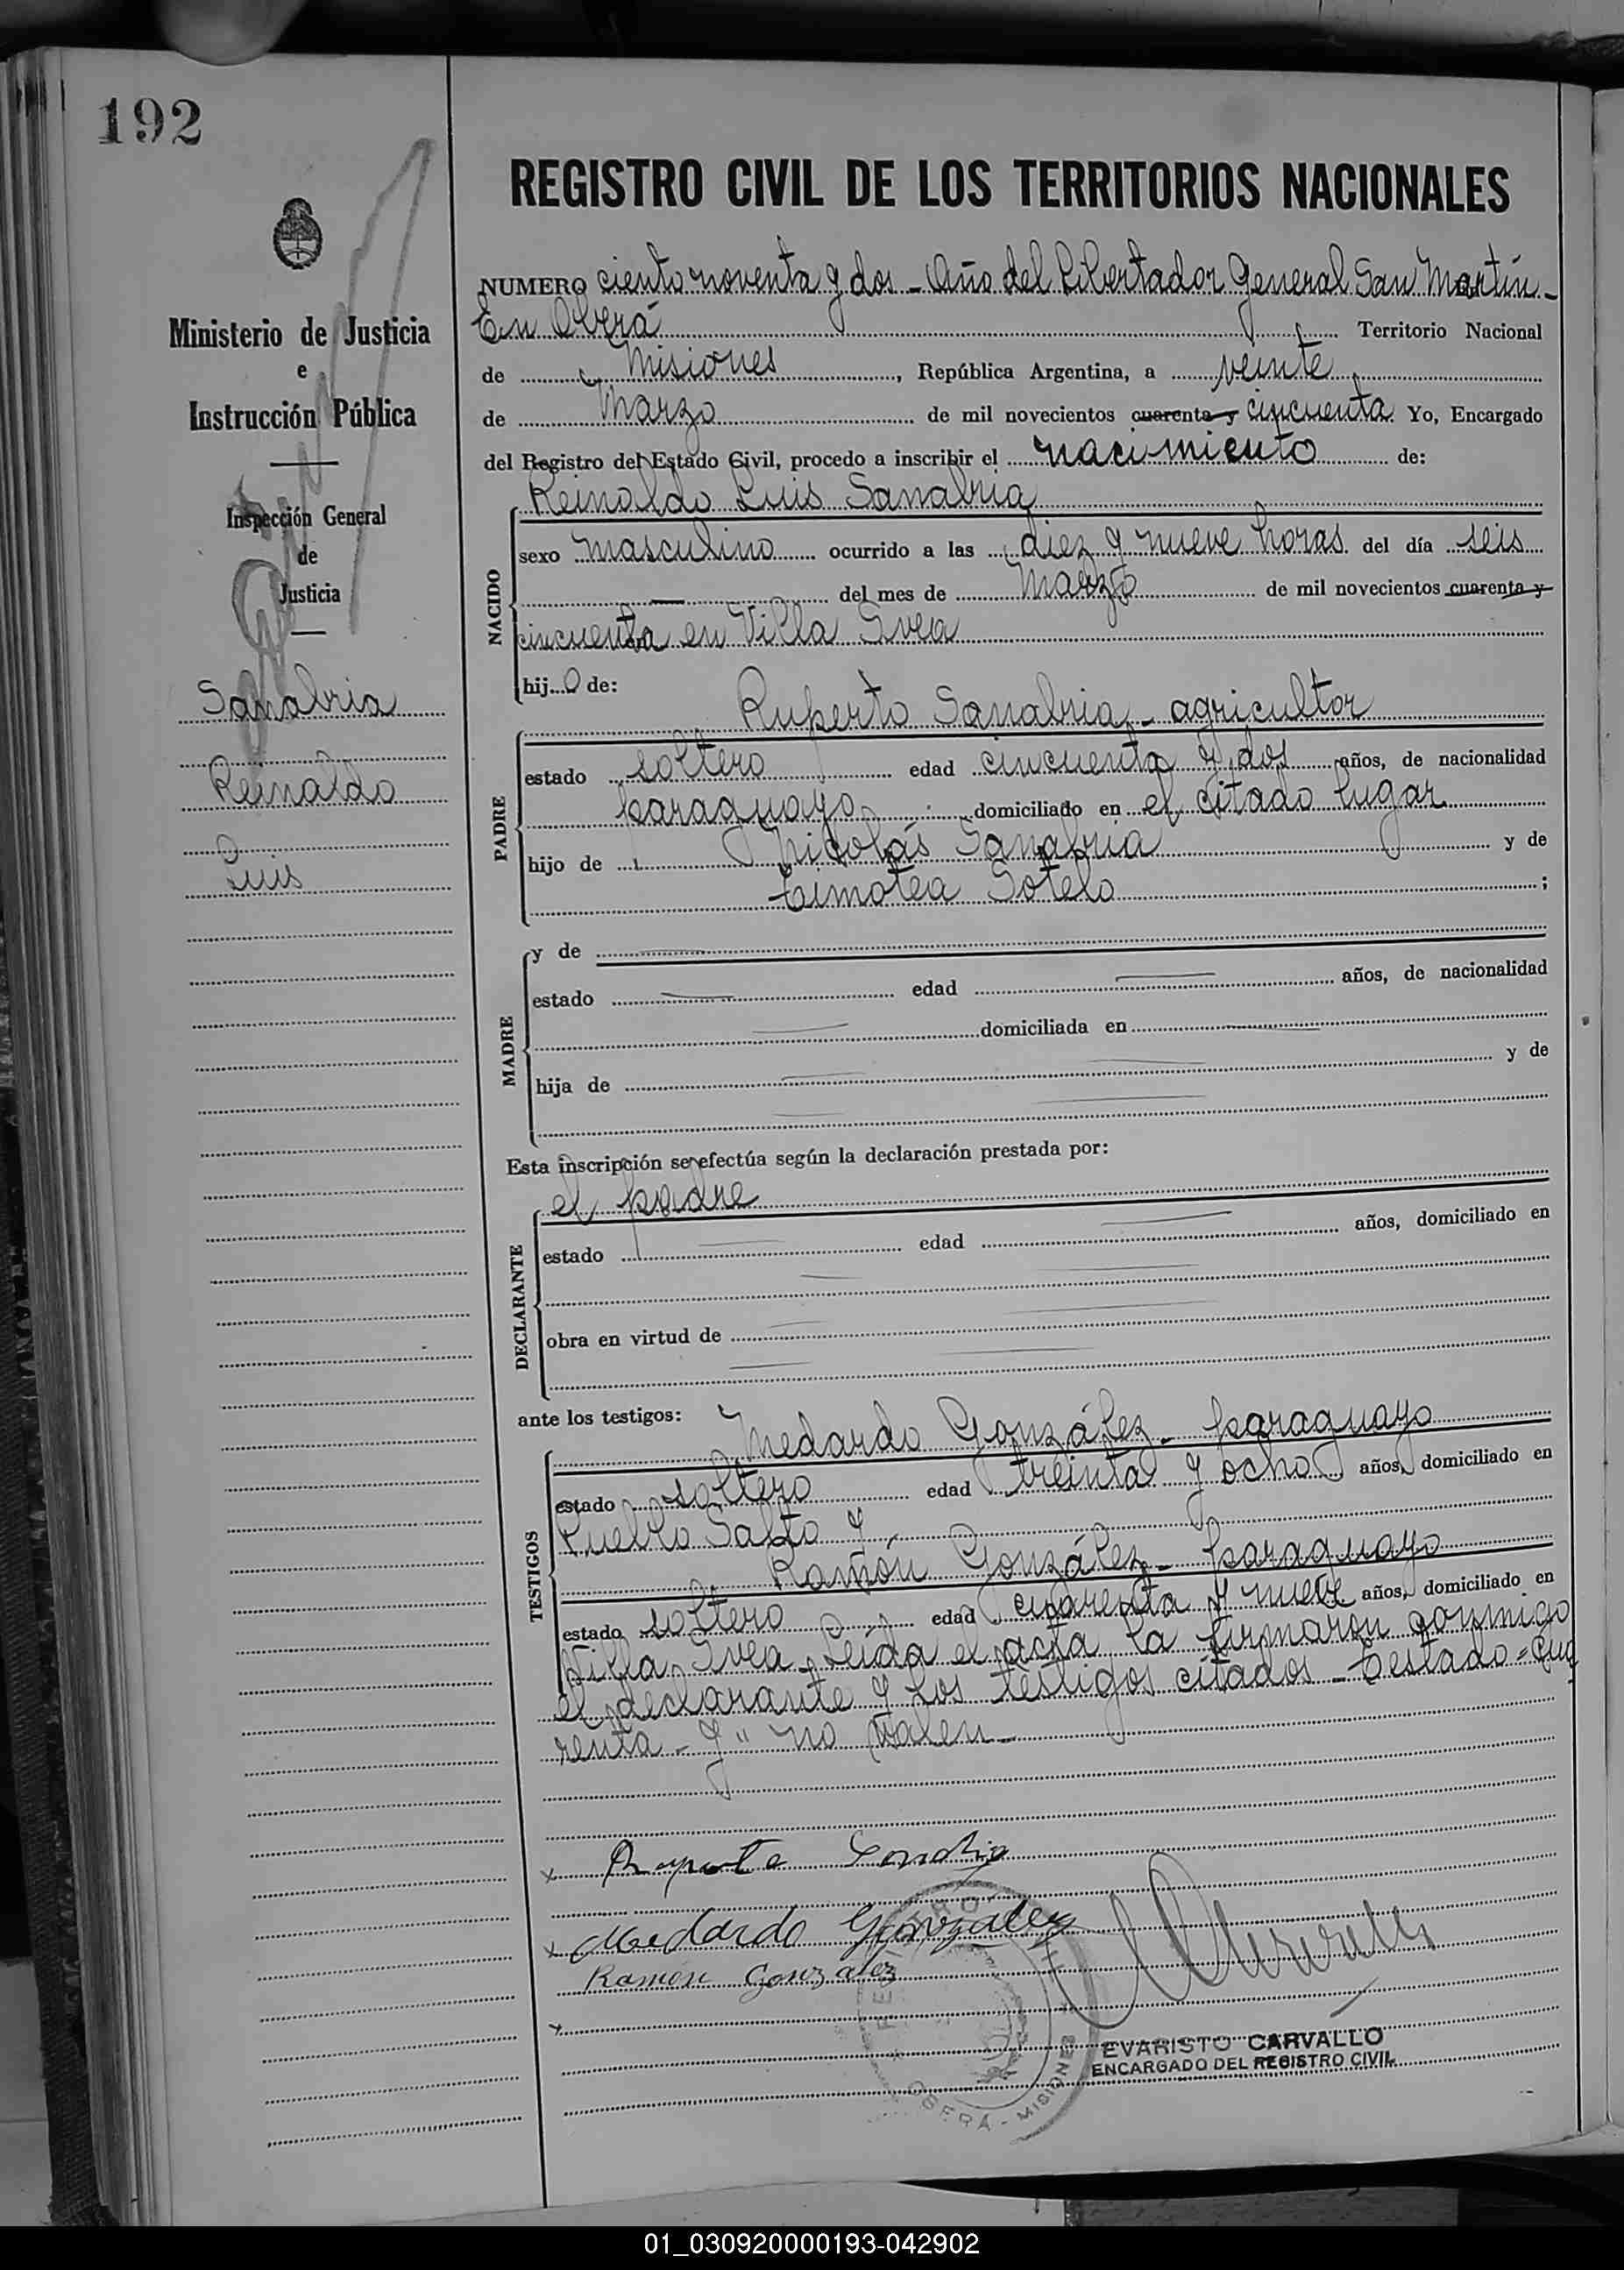 192
REGISTRO CIVIL DE LOS TERRITORIOS NACIONALES
NUMERO ciento noventa y dos - Año del Libertador General San Martín -
En Oberá Territorio Nacional
de Misiones, República Argentina, a veinte
de Marzo de mil novecientos cuarenta y cincuenta. Yo, Encargado
del Registro del Estado Civil, procedo a inscribir el nacimiento de:
Reinaldo Luis Sanabria
NACIDO
sexo masculino ocurrido a las diez y nueve horas del día seis
— del mes de Marzo de mil novecientos cuarenta y
cincuenta en Villa Svea
hijo de:
Ruperto Sanabria - agricultor
PADRE
estado soltero edad cincuenta y dos años, de nacionalidad
paraguayo domiciliado en el citado lugar
hijo de Nicolás Sanabria y de
Timotea Sotelo ;
MADRE
y de
estado — edad — años, de nacionalidad
— domiciliada en —
hija de — y de
Esta inscripción se efectúa según la declaración prestada por:
el padre
DECLARANTE
estado — edad — años, domiciliado en
obra en virtud de —
ante los testigos: Medardo González - paraguayo
TESTIGOS
estado soltero edad treinta y ocho años, domiciliado en
Pueblo Salto y
Ramón González - paraguayo
estado soltero edad cuarenta y nueve años, domiciliado en
Villa Svea. Leída el acta la firmaron conmigo
el declarante y los testigos citados - Testado = cua
renta - y" no valen -
x Ruperto Sanabria
x Medardo Gonzalez
Ramón Gonzalez
x
EVARISTO CARVALLO
ENCARGADO DEL REGISTRO CIVIL
REGISTRO CIVIL
* OBERÁ - MISIONES *
Ministerio de Justicia
e
Instrucción Pública
Inspección General
de
Justicia
Sanabria
Reinaldo
Luis
01_030920000193-042902